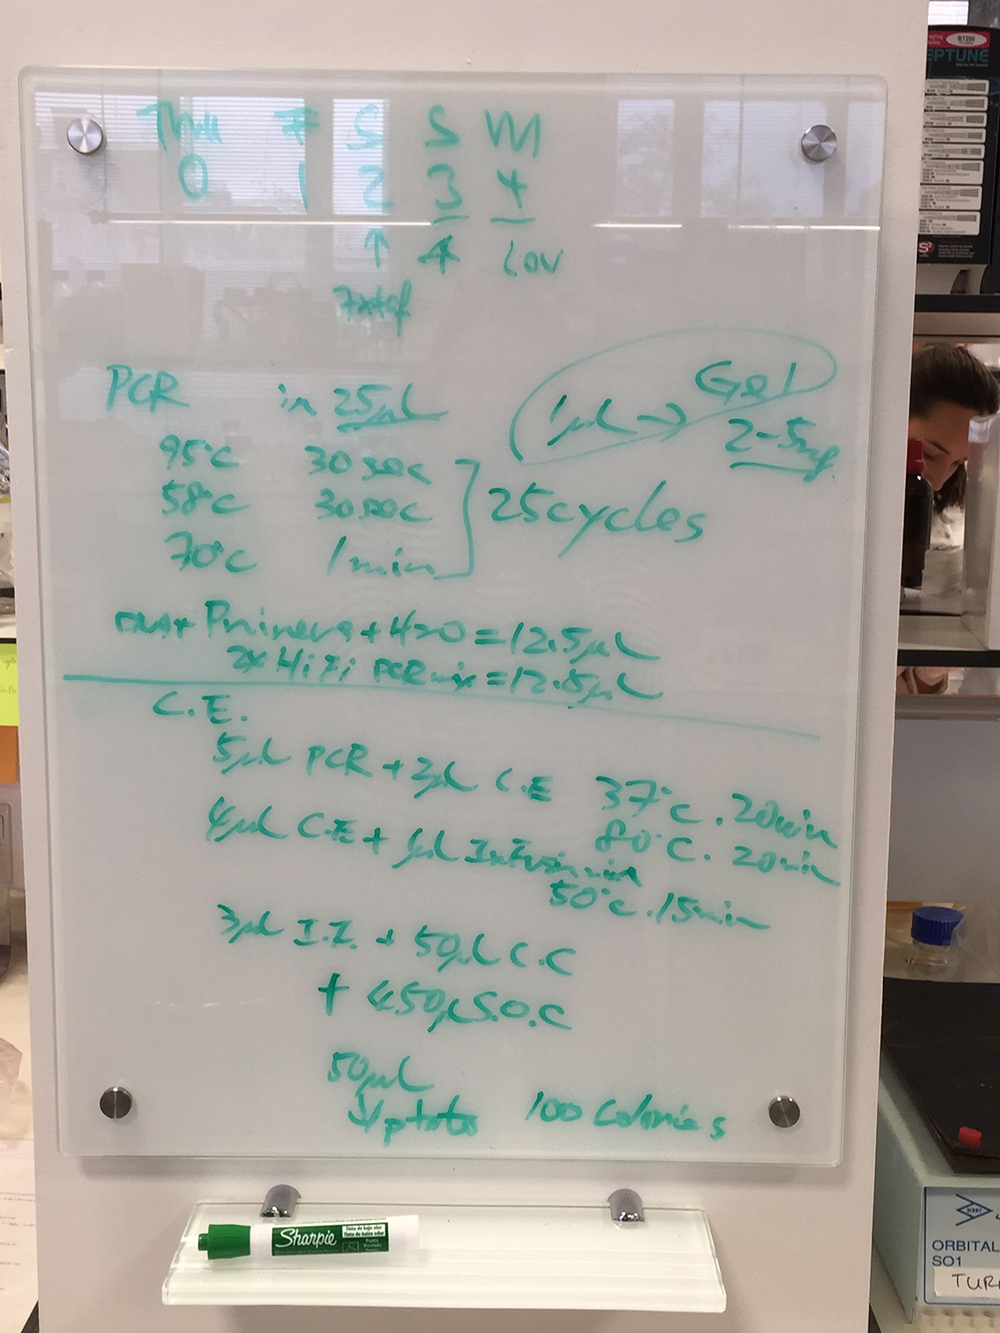 Thu F S S M
0 1 2 3 4
↑ 4
PCR in 25µL
1µL → Gel
2-5µg
95°C 30 sec
58°C 30 sec
70°C 1 min
25 cycles
Primers + H2O = 12.5µL
2x HiFi PCR mix = 12.5µL
C.E.
5µL PCR + 2µL C.E 37°C . 20min
80°C . 20min
4µL C.E + 1µL
50°C . 15min
3µL I.F. + 50µL C.C
+ 450µL S.O.C
50µL
↓ 100 Colonies
Sharpie
EPTUNE
ORBITAL
SO1
TUR